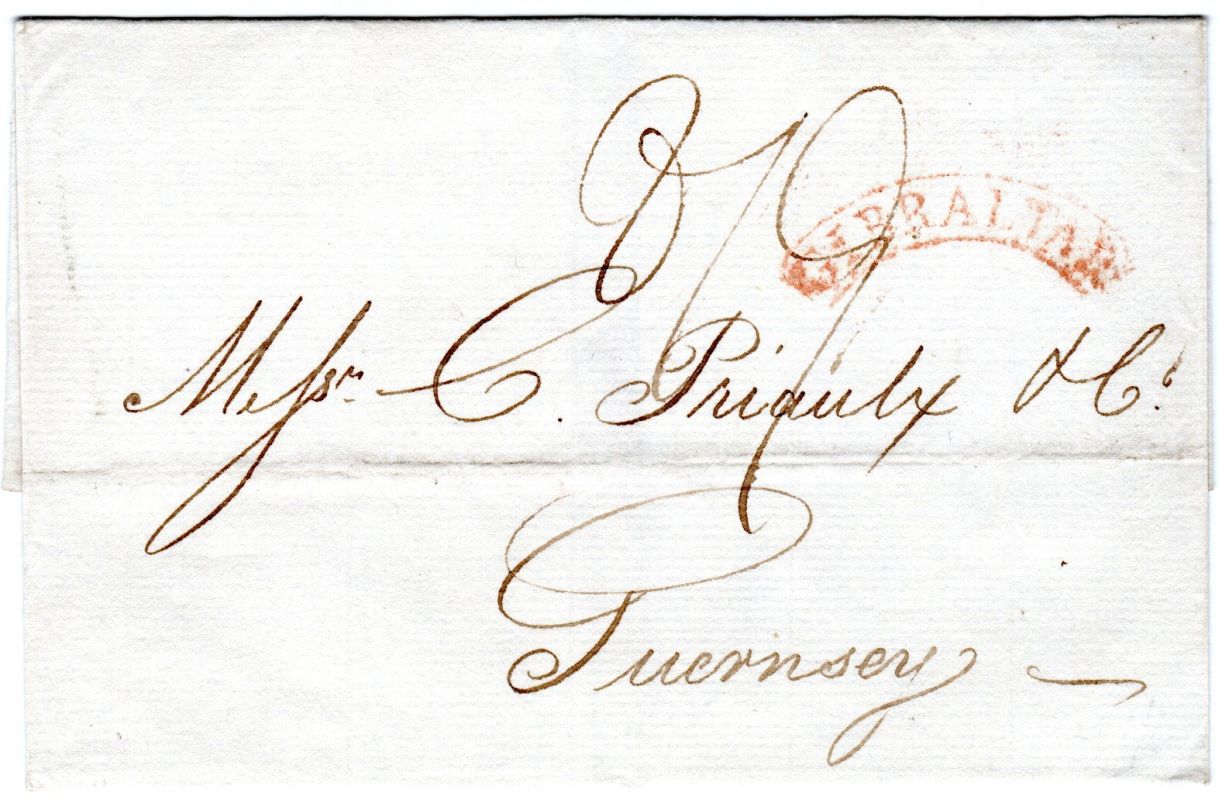 GIBRALTAR
Messrs. C. Priaulx & Co.
Guernsey